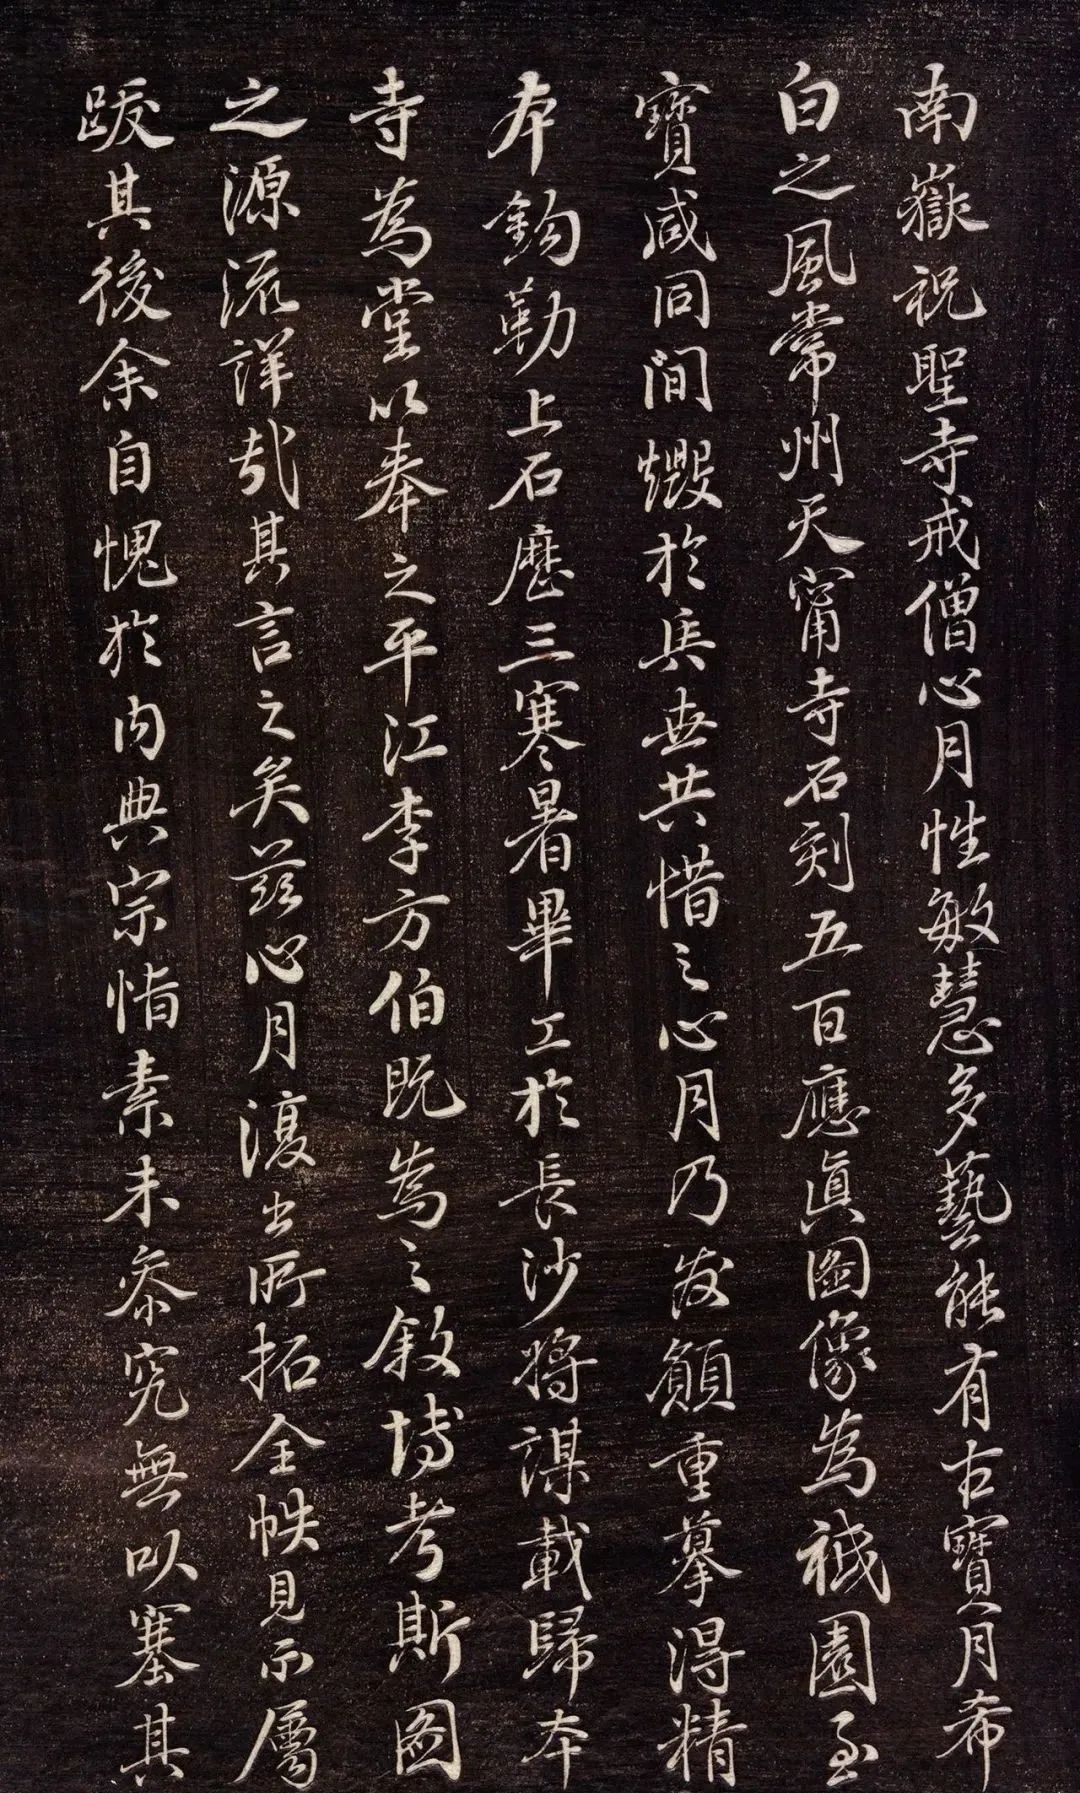 南嶽祝聖寺戒僧心月性敏慧多藝能有古寶月希
白之風常州天甯寺石刻五百應眞圖像為祇園至
寶咸同間燬於兵世共惜之心月乃发願重摹得精
本鈎勒上石歷三寒暑畢工於長沙將謀載歸本
寺為堂以奉之平江李方伯既為之敘博考斯圖
之源流詳哉其言之矣茲心月復出所拓全帙見示屬
跋其後余自愧於内典宗恉素未叅究無以塞其